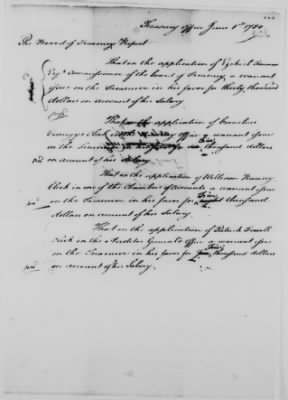 Treasury Office June 1st 1780
The Board of Treasury Report
That on the application of Ezekiel Forman
Esqr Commissioner of the board of Treasury, a warrant
issue on the Treasurer in his favor for thirty thousand
dollars on account of his Salary
That on the application of
Clerk in Office a warrant issue
on the Treasurer in his favor for thousand dollars
on account of his Salary
That on the application of William Ramsey
Clerk in one of the Chambers of Accounts a warrant issue
on the Treasurer in his favor for thousand
dollars on account of his Salary.
That on the application of Patrick Ferrall
Clerk in the Auditor Generals office a warrant issue
on the Treasurer in his favor for thousand dollars
on account of his Salary.